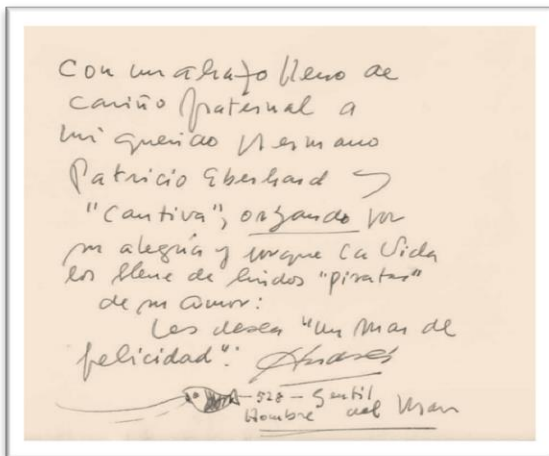 Con un abrazo lleno de
cariño fraternal a
mi querido Hermano
Patricio Eberhard y
"Cautiva", orzando por
su alegría y porque la Vida
los llene de lindos "piratas"
de su amor:
Les desea "un Mar de
felicidad":
Andrés
-528- Gentil
Hombre del Mar